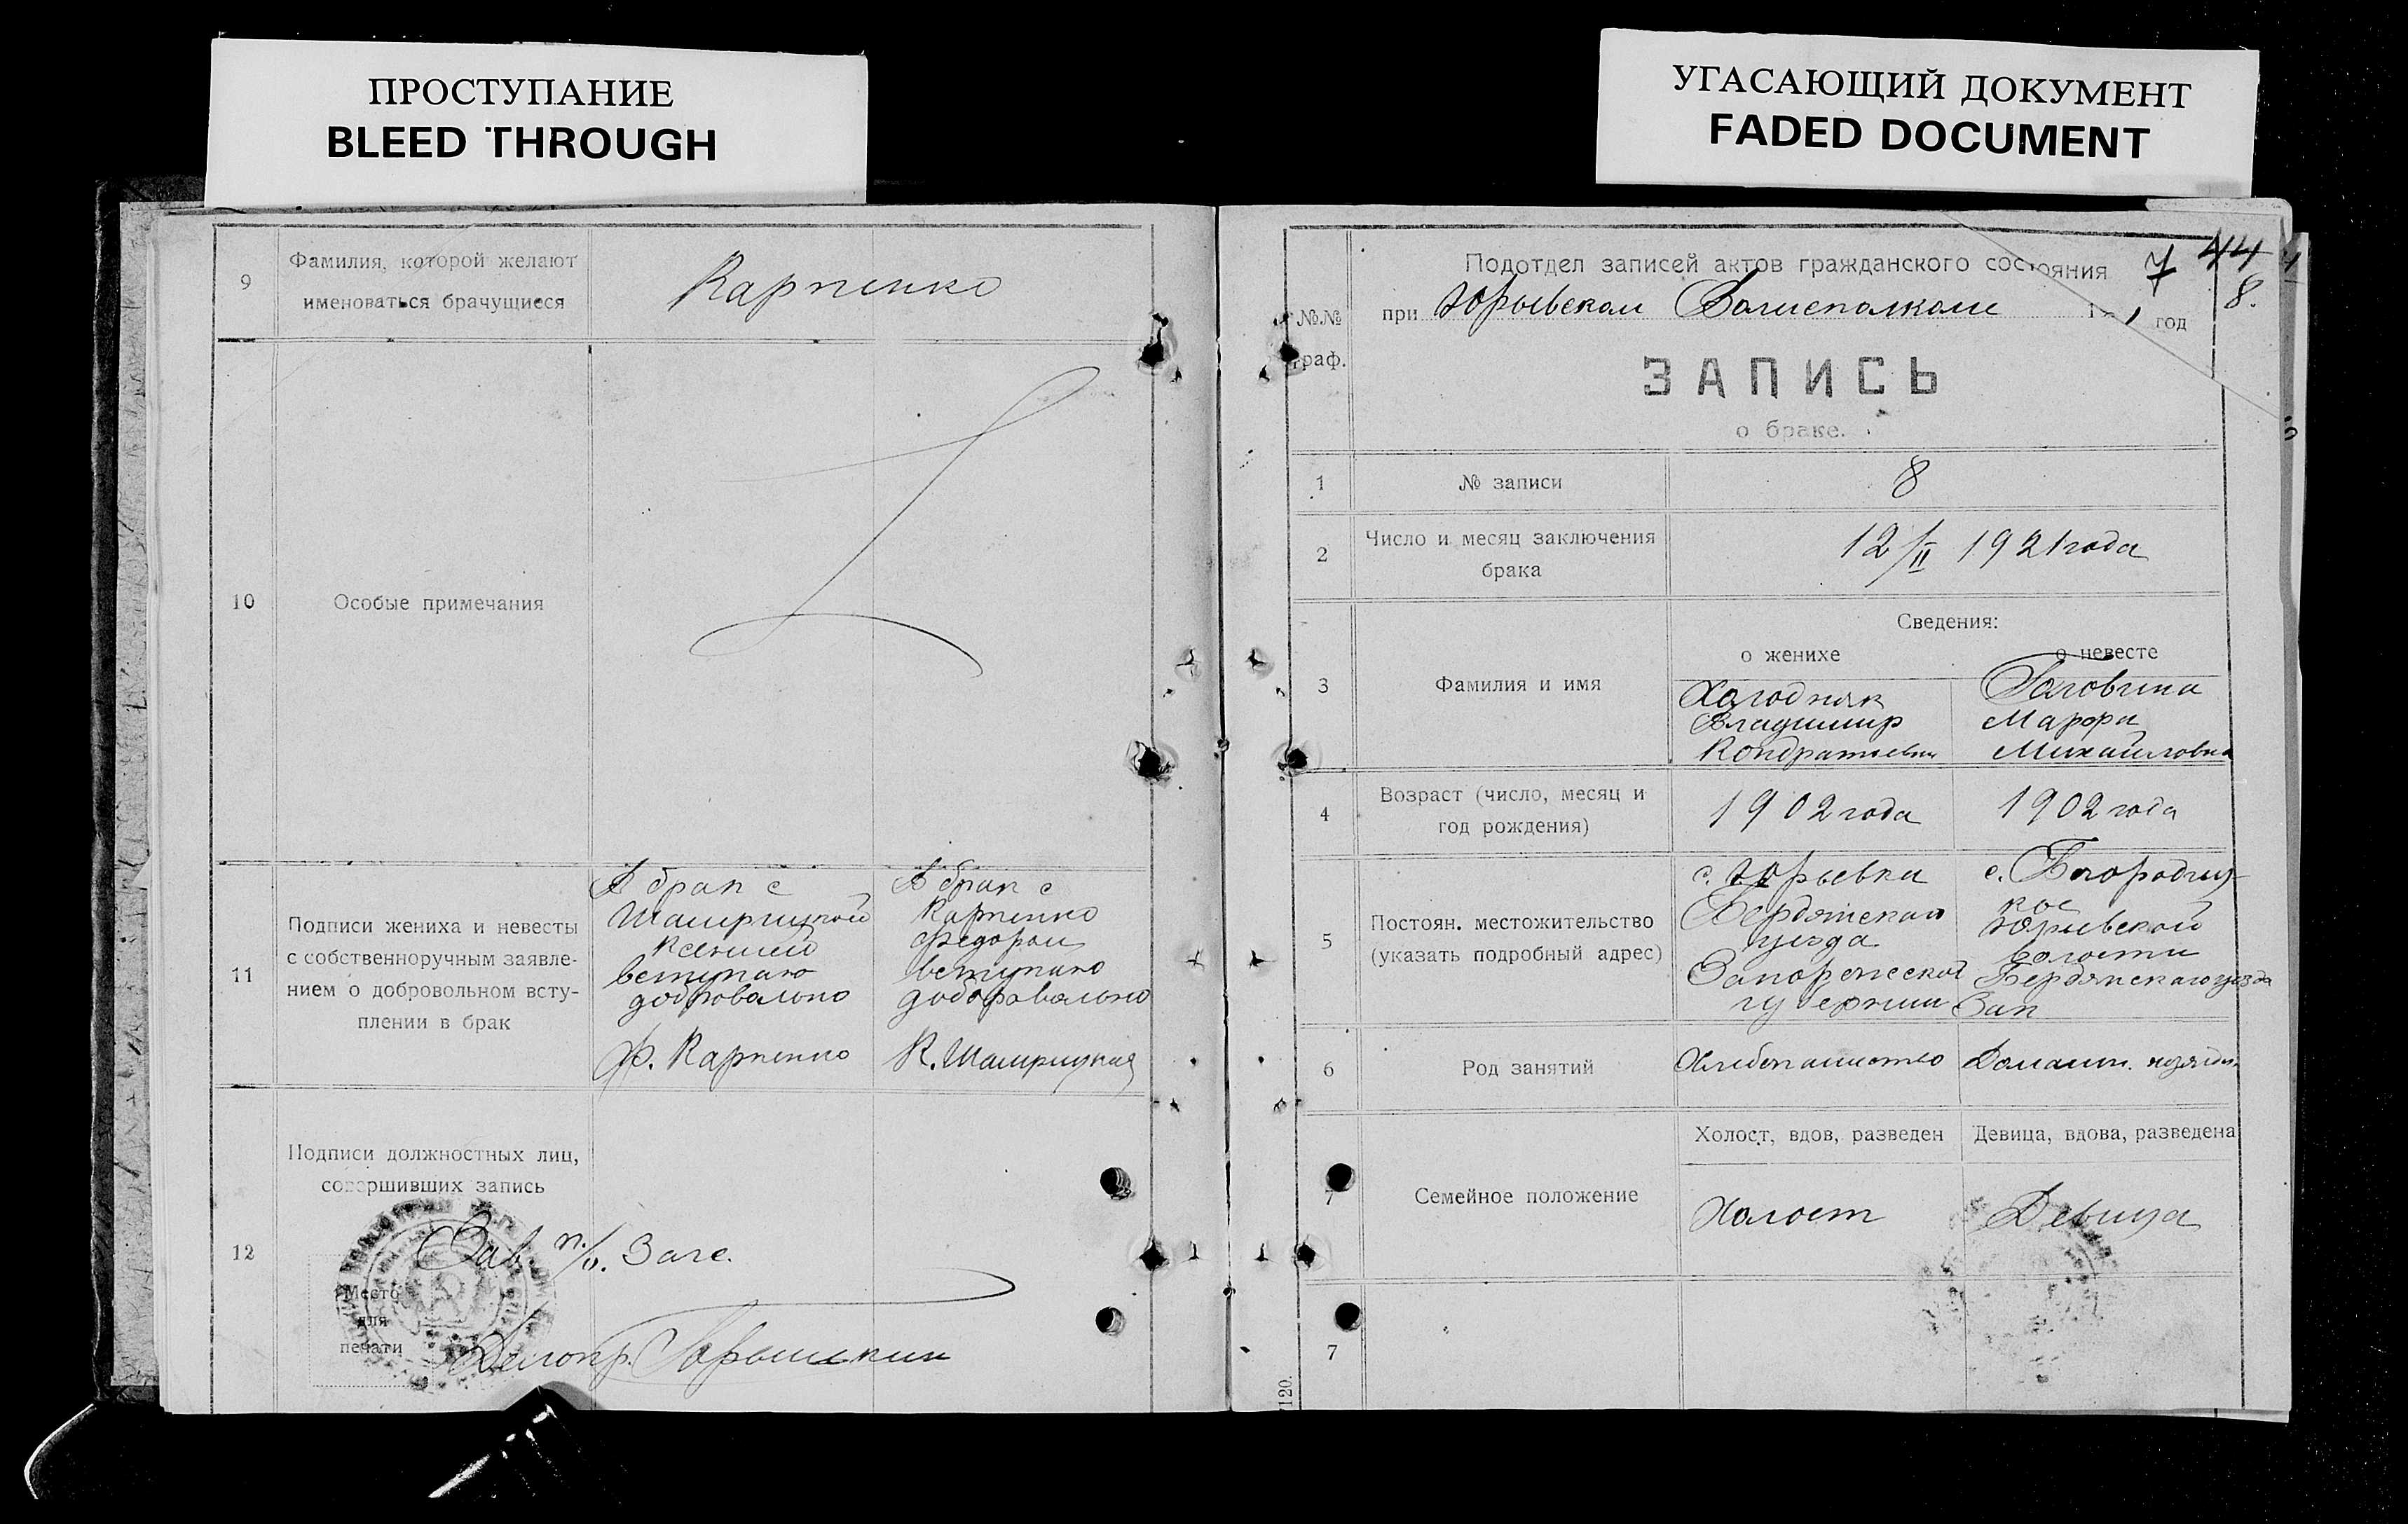 ПРОСТУПАНИЕ
BLEED THROUGH
УГАСАЮЩИЙ ДОКУМЕНТ
FADED DOCUMENT
9
Фамилия, которой желают
именоваться брачущиеся
Карпенко
10
Особые примечания
11
Подписи жениха и невесты
с собственноручным заявле-
нием о добровольном всту-
плении в брак
В брак с
Ксенией
вступаю
добровольно
Ф. Карпенко
В брак с
Карпенко
Федором
вступаю
добровольно
К.
12
Подписи должностных лиц,
совершивших запись
Зав. п/о. Загс.
Место
для
печати
Делопр.
44
7
8.
Подотдел записей актов гражданского состояния
№№
граф.
при Юрьевском Волисполкоме год
ЗАПИСЬ
о браке.
1
№ записи
8
2
Число и месяц заключения
брака
12/II 1921 года
3
Фамилия и имя
Сведения:
о женихе
о невесте
Холодняк
Владимир
Кондратьевич
Марфа
Михайловна
4
Возраст (число, месяц и
год рождения)
1902 года
1902 года
5
Постоян. местожительство
(указать подробный адрес)
с. Юрьевка
Бердянского
уезда
Запорожской
губернии
с. Богородиц-
кое
Юрьевской
волости
Бердянского уезда
Зап
6
Род занятий
Хлебопашество
Домашн. хозяйств.
7
Семейное положение
Холост, вдов, разведен
Девица, вдова, разведена
Холост
Девица
7
120.